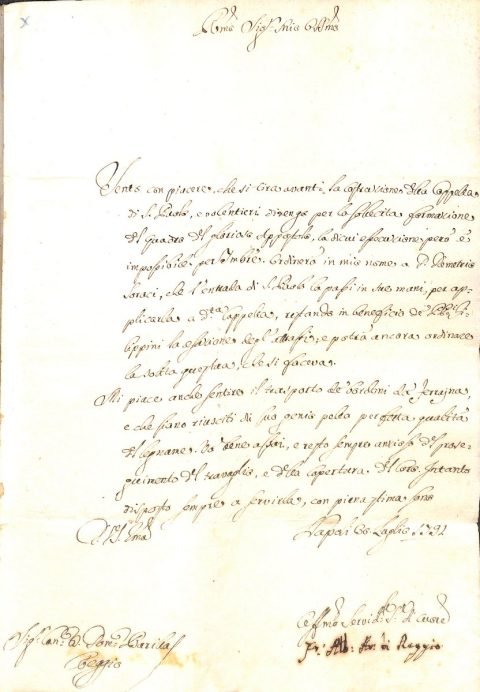 Ill.mo Sig.r Mio Oss.mo
Sento con piacere, che si tira avanti la costruzione della Cappella
di S. Paolo, e volentieri vengo per la sollecita formazione
del quadro del glorioso Apostolo, la di cui esecuzione però è
impossibile per Ordinerò in mio nome a D. Demetrio
Soraci, che l'entrata di S. Paolo la passi in sue mani, per ap-
plicarla a d.ta Cappella, restando in beneficio de' PP. Fi-
lippini la esazione degl'attrassi; e potrà ancora ordinare
la solita questua, che si faceva.
Mi piace anche sentire il trasporto de' bordoni da Terrajna,
e che siano riusciti di suo genio pella perfetta qualità
del legname. Va bene assai, e resto sempre ansioso del prose-
guimento del travaglio, e della copertura. Intanto
disposto sempre a servirla, con piena stima sono
Di V.S. Ill.ma Luglio 1791
Aff.mo Servid.re di Cuore
Sig. Can.co D. Dom.co
Reggio Fr. Ar. di Reggio